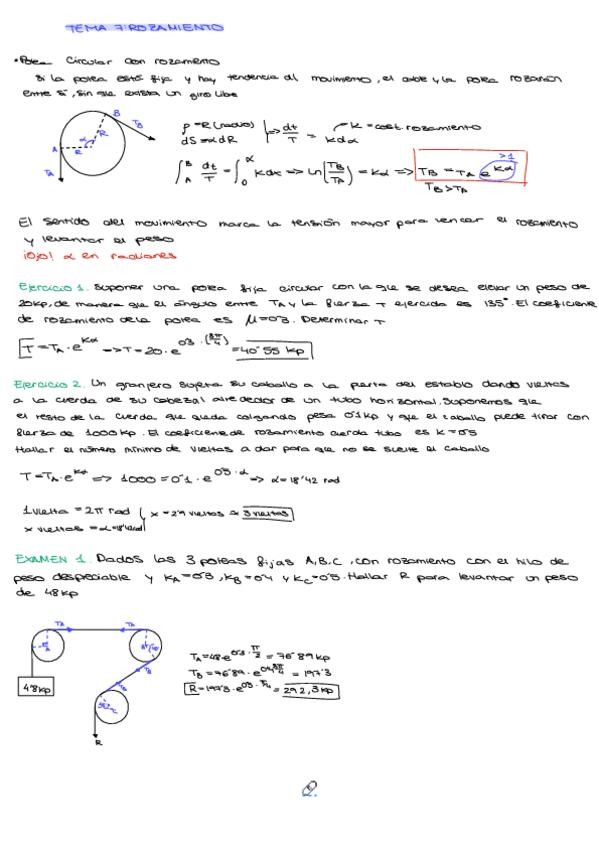 TEMA 7: ROZAMIENTO
• Polea circular con rozamiento
Si la polea está fija y hay tendencia al movimiento, el cable y la polea rozarán
entre sí, sin que exista un giro libre
B
TB
α
R
A
R
TA
ρ = R (radio)
dS = αdR
=> dt/T = kdα
K = coef. rozamiento
∫AB dt/T = ∫0α kdx => ln(TB/TA) = kα => TB = TA e^kα
>1
TB > TA
El sentido del movimiento marca la tensión mayor para vencer el rozamiento
y levantar el peso
¡Ojo! α en radianes
Ejercicio 1. Suponer una polea fija circular con la que se desea elevar un peso de
20kp, de manera que el ángulo entre TA y la fuerza T ejercida es 135°. El coeficiente
de rozamiento de la polea es μ=0'3. Determinar T
T = TA · e^kα => T = 20 · e^0'3·(3π/4) = 40'55 kp
Ejercicio 2. Un granjero sujeta su caballo a la puerta del establo dando vueltas
a la cuerda de su cabezal alrededor de un tubo horizontal. Suponemos que
el resto de la cuerda que queda colgando pesa 0'1kp y que el caballo puede tirar con
fuerza de 1000kp. El coeficiente de rozamiento cuerda tubo es k=0'5
Hallar el número mínimo de vueltas a dar para que no se suelte el caballo
T = TA · e^kα => 1000 = 0'1 · e^0'5·α => α = 18'42 rad
1 vuelta = 2π rad
x vueltas = α = 18'42rad
x = 2'9 vueltas ≈ 3 vueltas
EXAMEN 1. Dados las 3 poleas fijas A, B, C, con rozamiento con el hilo de
peso despeciable y KA=0'3, KB=0'4 y KC=0'5. Hallar R para levantar un peso
de 48kp
TA
TA
TB
48kp
R
TA = 48·e^0'3·π/2 = 76'89 kp
TB = 76'89·e^0'4·3π/4 = 197'3
R = 197'3·e^0'5·π/4 = 292,3 kp